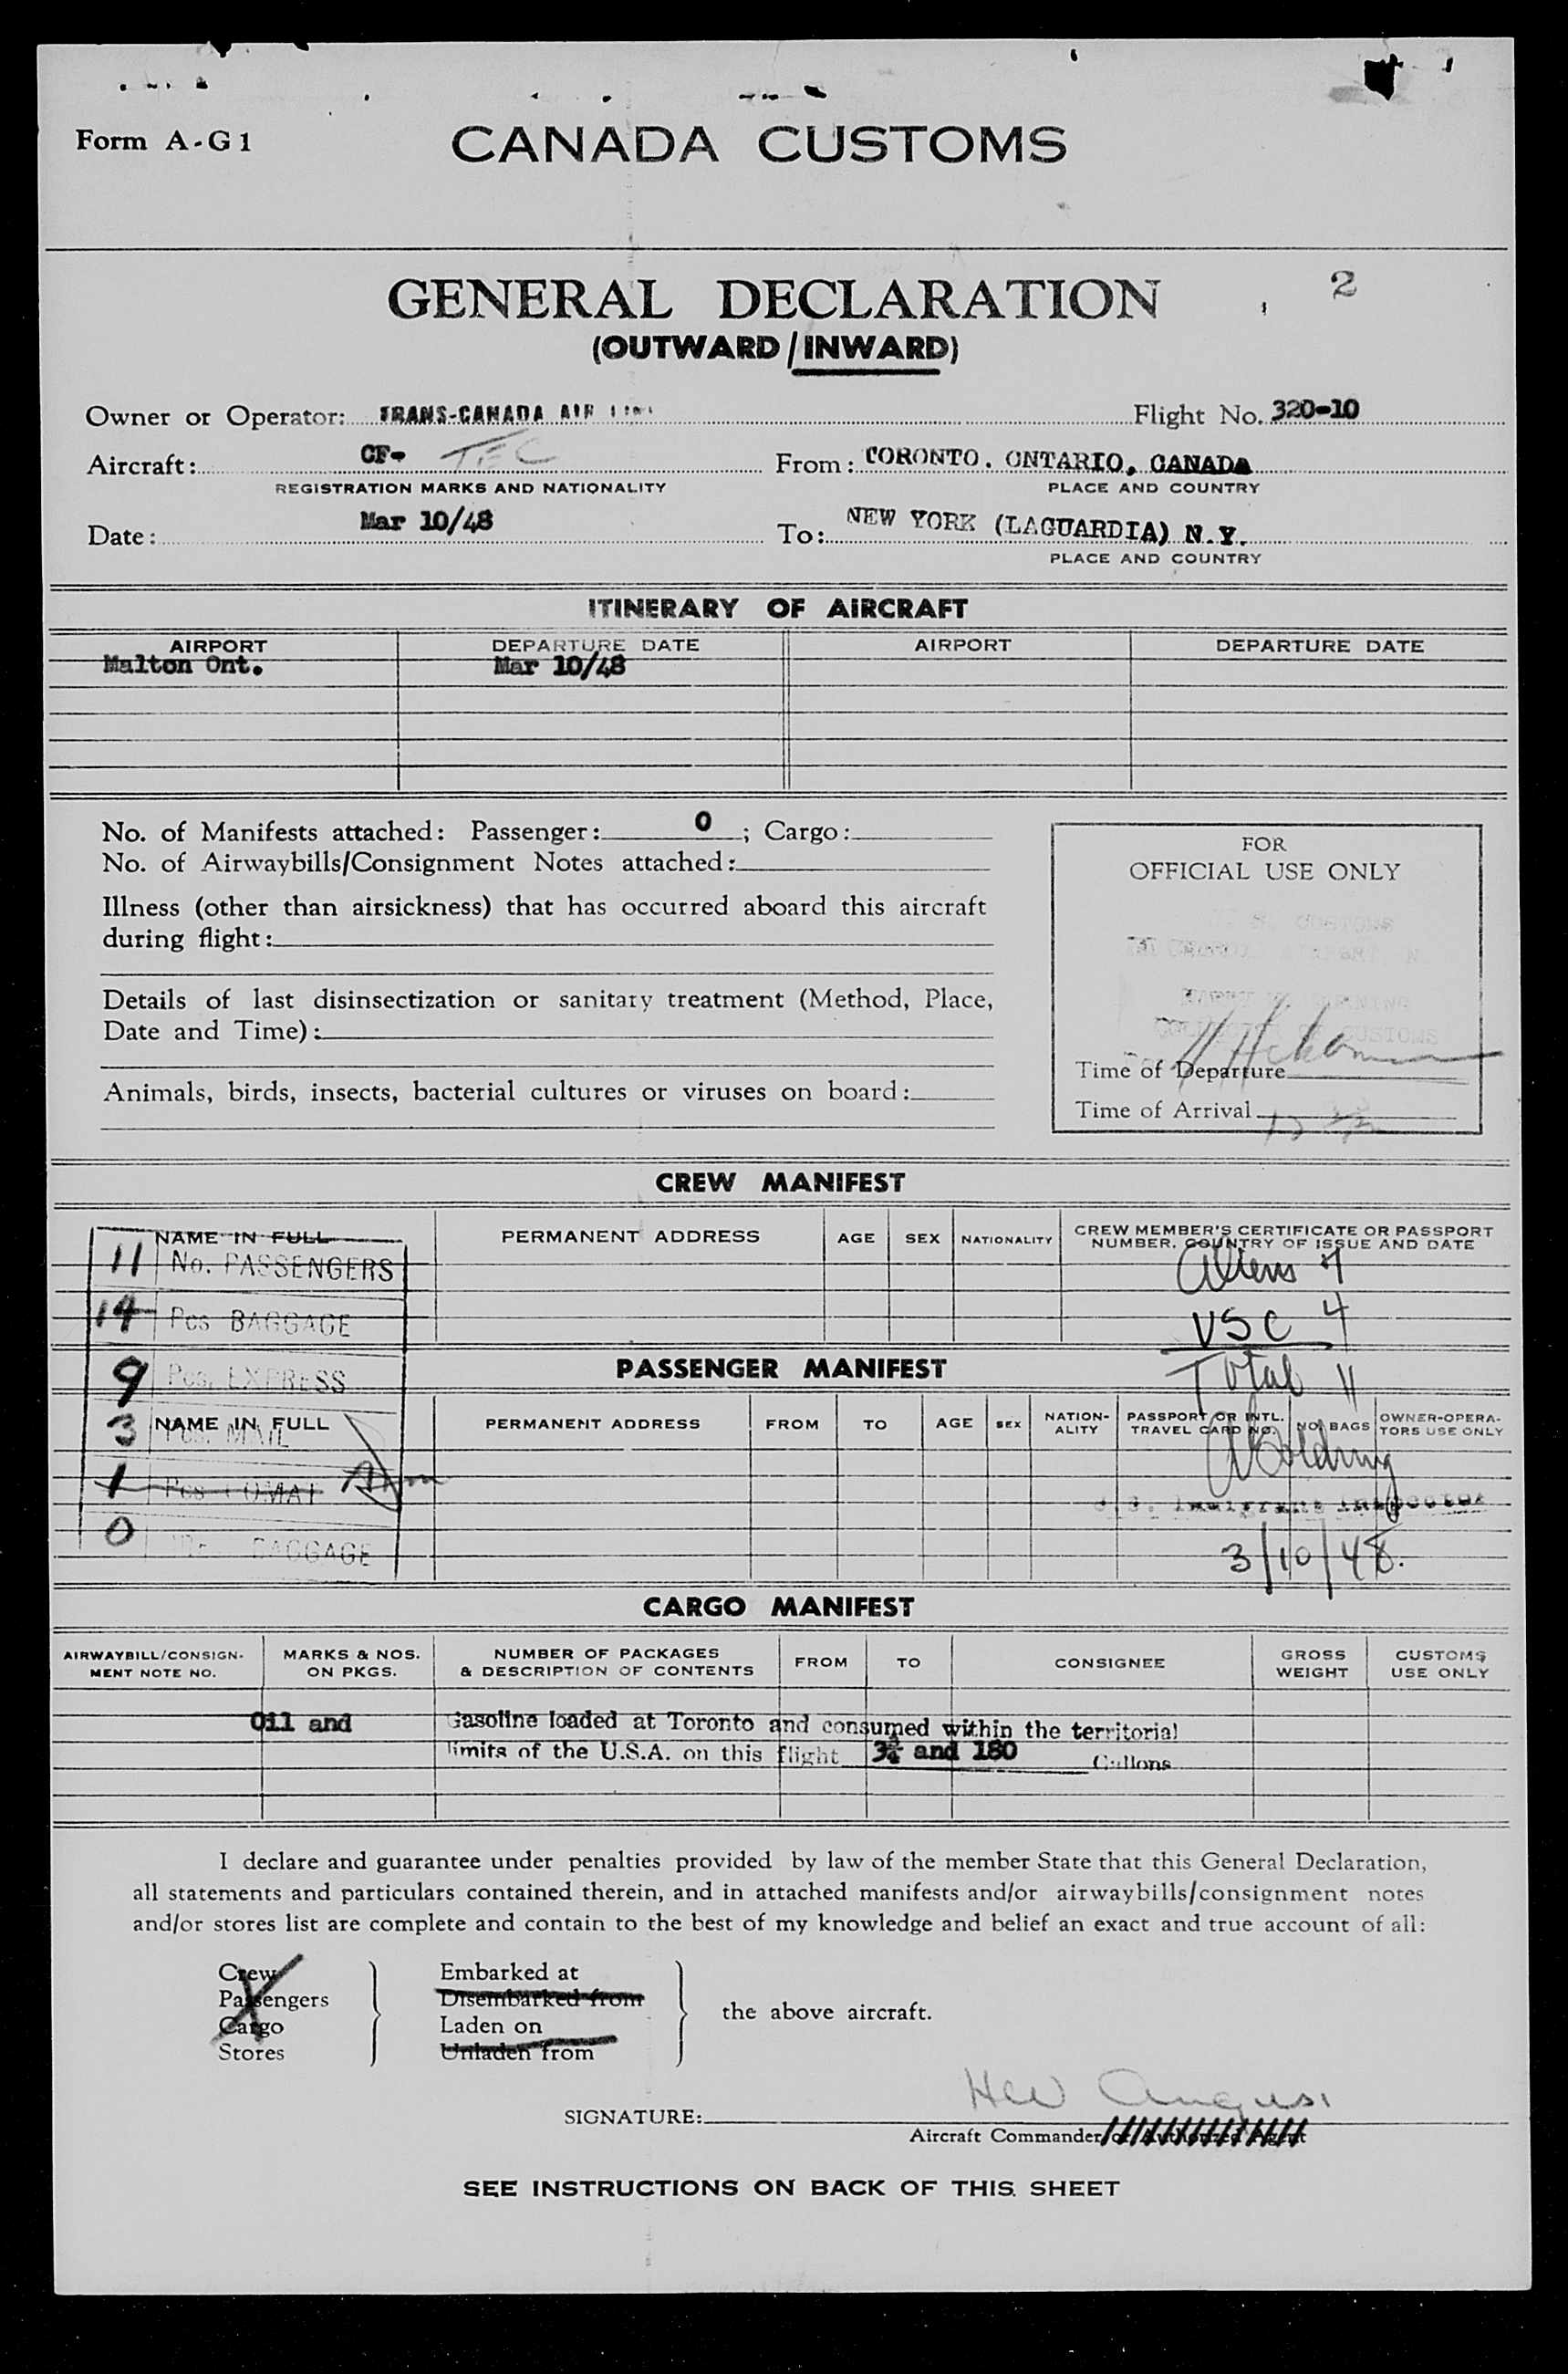 Form A-G1
CANADA CUSTOMS
GENERAL DECLARATION
2
(OUTWARD/INWARD)
Owner or Operator: TRANS-CANADA AIR
Flight No. 320-10
Aircraft: CF- TEC
REGISTRATION MARKS AND NATIONALITY
From: TORONTO. ONTARIO, CANADA
PLACE AND COUNTRY
Date: Mar 10/48
To: NEW YORK (LAGUARDIA) N.Y.
PLACE AND COUNTRY
ITINERARY OF AIRCRAFT
AIRPORT DEPARTURE DATE AIRPORT DEPARTURE DATE
Malton Ont. Mar 10/48
No. of Manifests attached: Passenger: 0 ; Cargo:
No. of Airwaybills/Consignment Notes attached:
Illness (other than airsickness) that has occurred aboard this aircraft
during flight:
Details of last disinsectization or sanitary treatment (Method, Place,
Date and Time):
Animals, birds, insects, bacterial cultures or viruses on board:
FOR
OFFICIAL USE ONLY
CUSTOMS
Time of Departure
Time of Arrival
CREW MANIFEST
NAME IN FULL PERMANENT ADDRESS AGE SEX NATIONALITY CREW MEMBER'S CERTIFICATE OR PASSPORT
NUMBER, COUNTRY OF ISSUE AND DATE
11 No. PASSENGERS
Aliens 7
14 Pcs BAGGAGE
USC 4
9 Pcs. EXPRESS
PASSENGER MANIFEST
Total 11
3 Pcs. MAIL
NAME IN FULL PERMANENT ADDRESS FROM TO AGE SEX NATION-
ALITY PASSPORT OR INTL.
TRAVEL CARD NO. NO. BAGS OWNER-OPERA-
TORS USE ONLY
1 Pcs COMAT
U.S. Immigrant Inspector
0 BAGGAGE
3/10/48.
CARGO MANIFEST
AIRWAYBILL/CONSIGN-
MENT NOTE NO. MARKS & NOS.
ON PKGS. NUMBER OF PACKAGES
& DESCRIPTION OF CONTENTS FROM TO CONSIGNEE GROSS
WEIGHT CUSTOMS
USE ONLY
Oil and Gasoline loaded at Toronto and consumed within the territorial
limits of the U.S.A. on this flight 3¾ and 180 Gallons
I declare and guarantee under penalties provided by law of the member State that this General Declaration,
all statements and particulars contained therein, and in attached manifests and/or airwaybills/consignment notes
and/or stores list are complete and contain to the best of my knowledge and belief an exact and true account of all:
Crew
Passengers
Cargo
Stores
Embarked at
Disembarked from
Laden on
Unladen from
the above aircraft.
SIGNATURE: HW Angus
Aircraft Commander or Authorized Agent
SEE INSTRUCTIONS ON BACK OF THIS SHEET